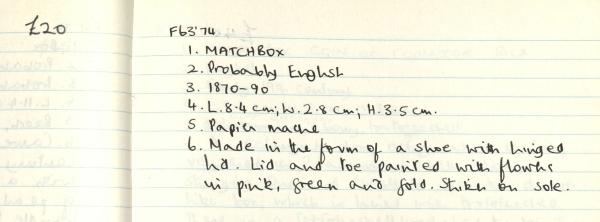 £20
F63'74
1. MATCHBOX
2. Probably English
3. 1870-90
4. L. 8.4 cm; W. 2.8 cm; H. 3.5 cm.
5. Papier mache
6. Made in the form of a shoe with hinged
lid. Lid and toe painted with flowers
in pink, green and gold. Striker on sole.